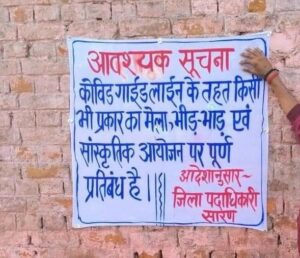 आवश्यक सूचना
कोविड गाईडलाईन के तहत किसी
भी प्रकार का मेला, भीड़-भाड़ एवं
सांस्कृतिक आयोजन पर पूर्ण
प्रतिबंध है।
आदेशानुसार~
जिला पदाधिकारी
सारण